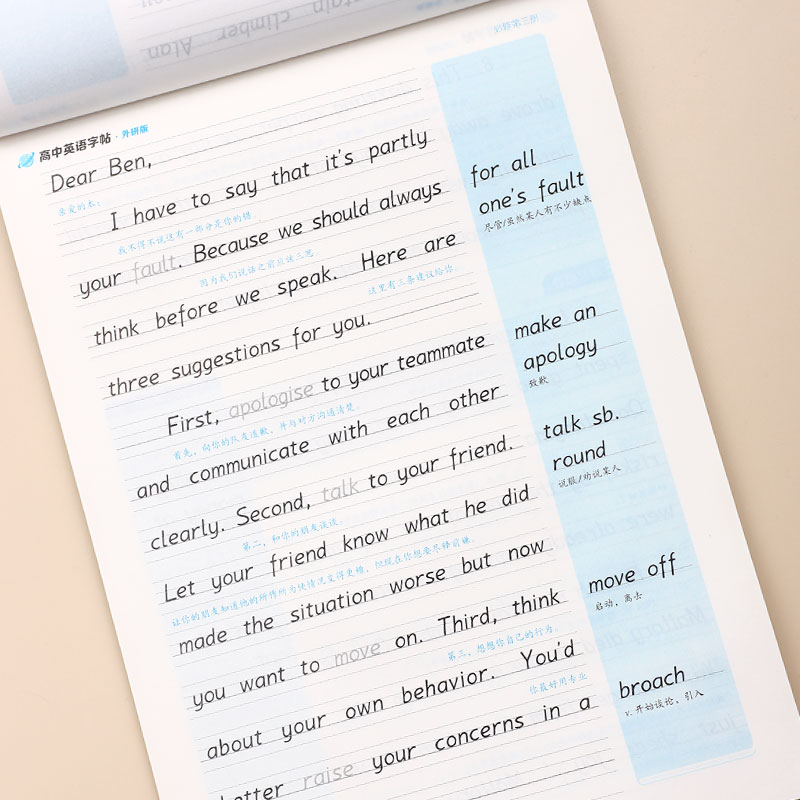 tain climber Alan
必修第三册
高中英语字帖·外研版
Dear Ben,
亲爱的本:
I have to say that it's partly
我不得不说这有一部分是你的错。
your fault. Because we should always
因为我们说话之前应该三思。
think before we speak. Here are
这里有三条建议给你。
three suggestions for you.
First, apologise to your teammate
首先,向你的队友道歉,并与对方沟通清楚。
and communicate with each other
clearly. Second, talk to your friend.
第二,和你的朋友谈谈。
Let your friend know what he did
让你的朋友知道他的所作所为使情况变得更糟,但现在你想要尽释前嫌。
made the situation worse but now
you want to move on. Third, think
第三,想想你自己的行为。
about your own behavior. You'd
你最好用专业
better raise your concerns in a
for all
one's fault
尽管/虽然某人有不少缺点
make an
apology
致歉
talk sb.
round
说服/劝说某人
move off
启动,离去
broach
v. 开始谈论,引入